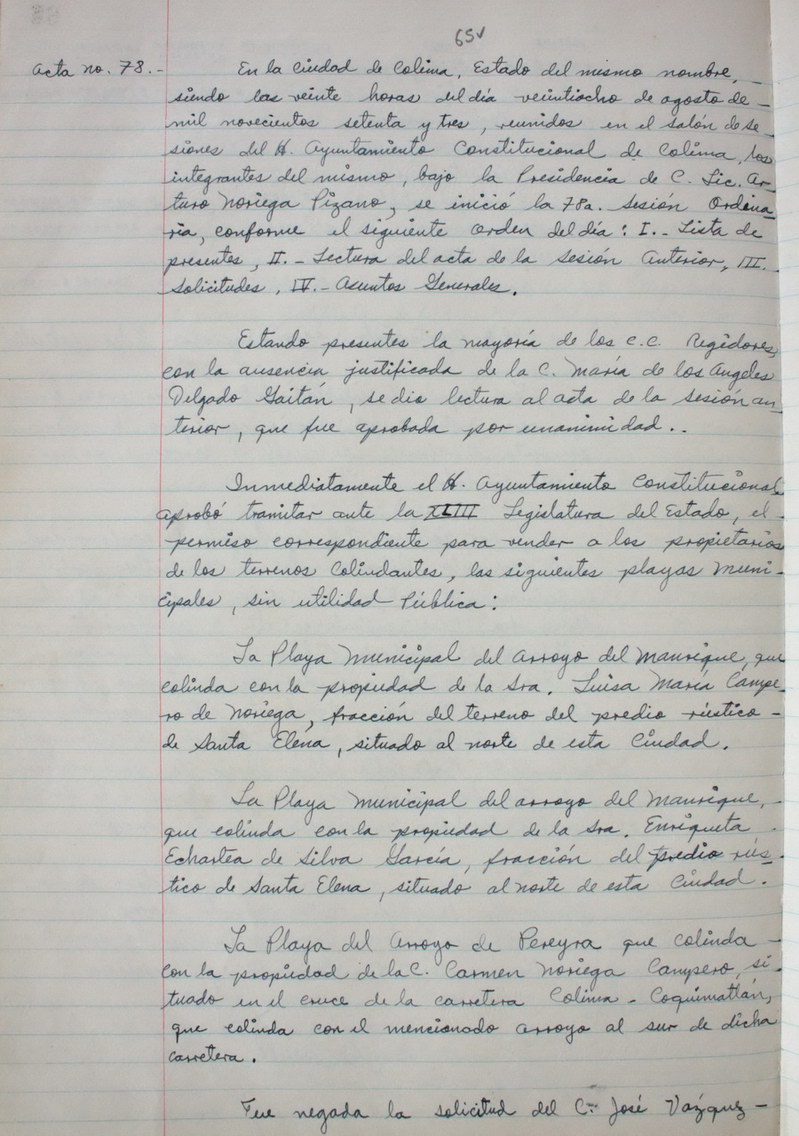 65v
Acta no. 78.- En la Ciudad de Colima, Estado del mismo nombre, -
siendo las veinte horas del día veintiocho de agosto de -
mil novecientos setenta y tres, reunidos en el salón de se-
siones del H. Ayuntamiento Constitucional de Colima, los
integrantes del mismo, bajo la Presidencia de C. Lic. Ar-
turo Noriega Pizano, se inició la 78a. Sesión Ordina-
ria, conforme el siguiente Orden del día: I.- Lista de
presentes, II.- Lectura del acta de la Sesión Anterior, III.-
Solicitudes, IV.- Asuntos Generales.
Estando presentes la mayoría de los C.C. Regidores,
con la ausencia justificada de la C. María de los Angeles
Delgado Gaitán, se dio lectura al acta de la sesión an-
terior, que fue aprobada por unanimidad..
Inmediatamente el H. Ayuntamiento Constitucional
aprobó tramitar ante la XLIII Legislatura del Estado, el -
permiso correspondiente para vender a los propietarios
de los terrenos colindantes, las siguientes playas Muni-
cipales, sin utilidad Pública:
La Playa Municipal del Arroyo del Manrique, que
colinda con la propiedad de la Sra. Luisa María Campe-
ro de Noriega, fracción del terreno del predio rústico -
de Santa Elena, situado al norte de esta Ciudad.
La Playa Municipal del arroyo del Manrique, -
que colinda con la propiedad de la Sra. Enriqueta -
Echartea de Silva García, fracción del predio rús-
tico de Santa Elena, situado al norte de esta Ciudad.
La Playa del Arroyo de Pereyra que colinda -
con la propiedad de la C. Carmen Noriega Campero, si-
tuado en el cruce de la carretera Colima - Coquimatlán,
que colinda con el mencionado arroyo al sur de dicha
carretera.
Fue negada la solicitud del C. José Vázquez -